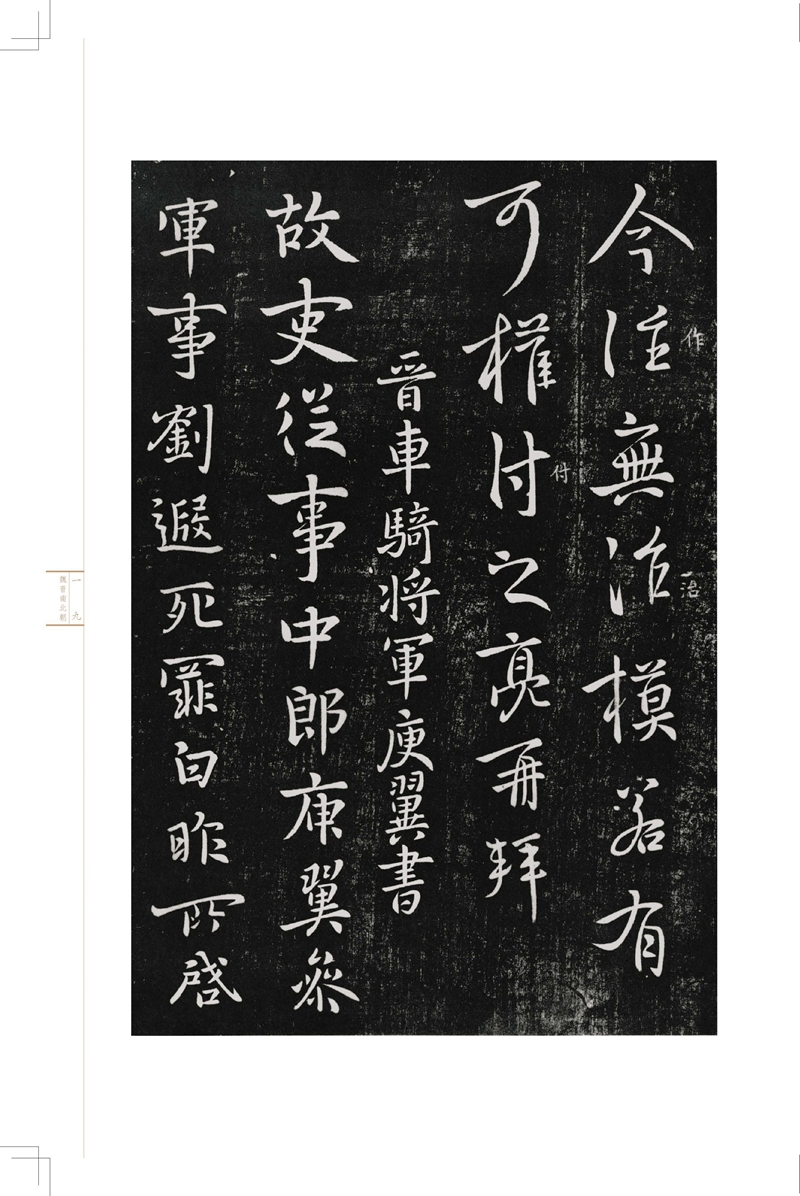 今往無治模若有
作
治
可權付之亮再拜
付
晉車騎将軍庾翼書
故吏從事中郎庾翼參
軍事劉遐死罪白昨所啓
一九
魏晉南北朝